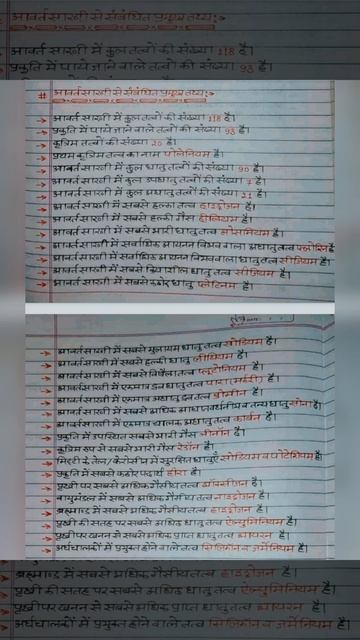 आवर्त सारणी से संबंधित प्रमुख तथ्य:-
आवर्त सारणी में कुल तत्वों की संख्या 118 है।
प्रकृति में पाये जाने वाले तत्वों की संख्या 93 है।
# आवर्त सारणी से संबंधित प्रमुख तथ्य:-
→ आवर्त सारणी में कुल तत्वों की संख्या 118 है।
→ प्रकृति में पाये जाने वाले तत्वों की संख्या 93 है।
→ कृत्रिम तत्वों की संख्या 20 है।
→ प्रथम कृत्रिम तत्व का नाम पोलेनियम है।
→ आवर्त सारणी में कुल धातु तत्वों की संख्या 90 है।
→ आवर्त सारणी में कुल उपधातु तत्वों की संख्या 7 है।
→ आवर्त सारणी में कुल अधातु तत्वों की संख्या 21 है।
→ आवर्त सारणी में सबसे हल्का तत्व हाइड्रोजन है।
→ आवर्त सारणी में सबसे हल्की गैस हीलियम है।
→ आवर्त सारणी में सबसे भारी धातु तत्व ओसमियम है।
→ आवर्त सारणी में सर्वाधिक आयनन विभव वाला अधातु तत्व फ्लोरिन है
→ आवर्त सारणी में सर्वाधिक आयनन विभव वाला धातु तत्व सीजियम है।
→ आवर्त सारणी में सबसे क्रियाशील धातु तत्व सीजियम है।
→ आवर्त सारणी में सबसे कठोर धातु प्लेटिनम है।
→ आवर्त सारणी में सबसे मुलायम धातु तत्व सोडियम है।
→ आवर्त सारणी में सबसे हल्की धातु लीथियम है।
→ आवर्त सारणी में सबसे विषैला तत्व प्लूटोनियम है।
→ आवर्त सारणी में एकमात्र द्रव धातु तत्व पारा (मर्करी) है।
→ आवर्त सारणी में एकमात्र अधातु द्रव तत्व ब्रोमीन है।
→ आवर्त सारणी में सबसे अधिक आघातवर्धनीय व तन्य धातु सोना है।
→ आवर्त सारणी में एकमात्र चालक अधातु तत्व कार्बन है।
→ प्रकृति में उपस्थित सबसे भारी गैस जीनॉन है।
→ कृत्रिम रूप से सबसे भारी गैस रेडॉन है।
→ मिट्टी के तेल/केरोसीन में सुरक्षित धातुएँ सोडियम व पोटेशियम है।
→ प्रकृति में सबसे कठोर पदार्थ हीरा है।
→ पृथ्वी पर सबसे अधिक गैसीय तत्व ऑक्सीजन है।
→ वायुमंडल में सबसे अधिक गैसीय तत्व नाइट्रोजन है।
→ ब्रह्माण्ड में सबसे अधिक गैसीय तत्व हाइड्रोजन है।
→ पृथ्वी की सतह पर सबसे अधिक धातु तत्व ऐल्युमिनियम है।
→ पृथ्वी पर खनन से सबसे अधिक प्राप्त धातु तत्व आयरन है।
→ अर्धचालकों में प्रयुक्त होने वाले तत्व सिलिकॉन व जर्मेनियम है।
→ ब्रह्माण्ड में सबसे अधिक गैसीय तत्व हाइड्रोजन है।
→ पृथ्वी की सतह पर सबसे अधिक धातु तत्व ऐल्युमिनियम है।
→ पृथ्वी पर खनन से सबसे अधिक प्राप्त धातु तत्व आयरन है।
→ अर्धचालकों में प्रयुक्त होने वाले तत्व सिलिकॉन व जर्मेनियम है।